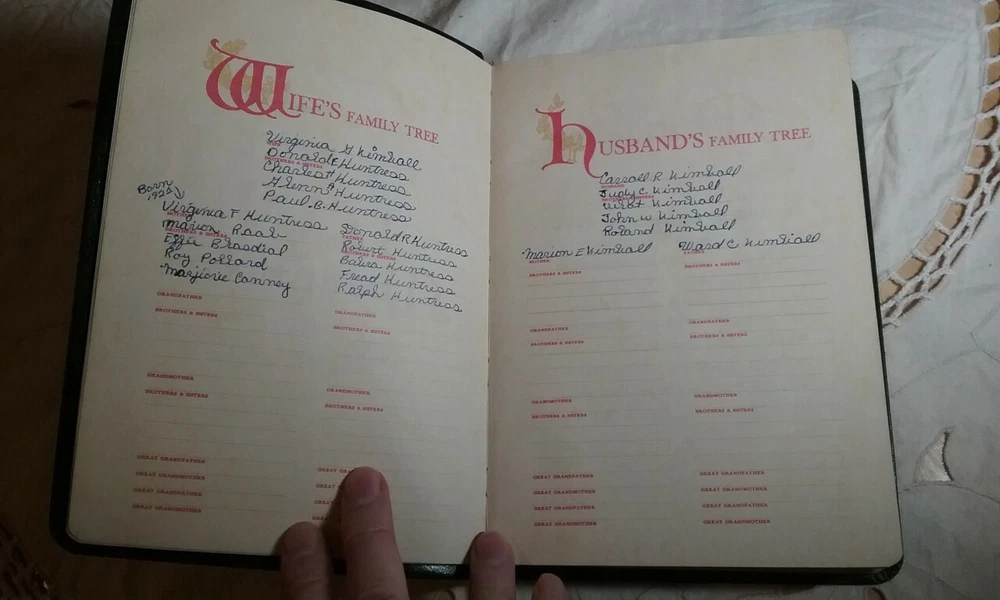 WIFE'S FAMILY TREE
Virginia G Kimball
WIFE
Donald F Huntress
BROTHERS & SISTERS
Charles H Huntress
Glenn A Huntress
Paul B. Huntress
Born
1925
Virginia F Huntress
MOTHER
Marion Raab
BROTHERS & SISTERS
Effie Blasdial
Roy Pollard
Marjorie Canney
Donald R Huntress
FATHER
Robert Huntress
BROTHERS & SISTERS
Huntress
Fread Huntress
Ralph Huntress
GRANDFATHER
BROTHERS & SISTERS
GRANDFATHER
BROTHERS & SISTERS
GRANDMOTHER
BROTHERS & SISTERS
GRANDMOTHER
BROTHERS & SISTERS
GREAT GRANDFATHER
GREAT GRANDMOTHER
GREAT GRANDFATHER
GREAT GRANDMOTHER
GREAT
GREAT
GREAT
GREAT
HUSBAND'S FAMILY TREE
Carroll R Kimball
HUSBAND
Judy C Kimball
BROTHERS & SISTERS
Kimball
John W Kimball
Roland Kimball
Marion E Kimball
MOTHER
BROTHERS & SISTERS
Ward C Kimball
FATHER
BROTHERS & SISTERS
GRANDFATHER
BROTHERS & SISTERS
GRANDFATHER
BROTHERS & SISTERS
GRANDMOTHER
BROTHERS & SISTERS
GRANDMOTHER
BROTHERS & SISTERS
GREAT GRANDFATHER
GREAT GRANDMOTHER
GREAT GRANDFATHER
GREAT GRANDMOTHER
GREAT GRANDFATHER
GREAT GRANDMOTHER
GREAT GRANDFATHER
GREAT GRANDMOTHER